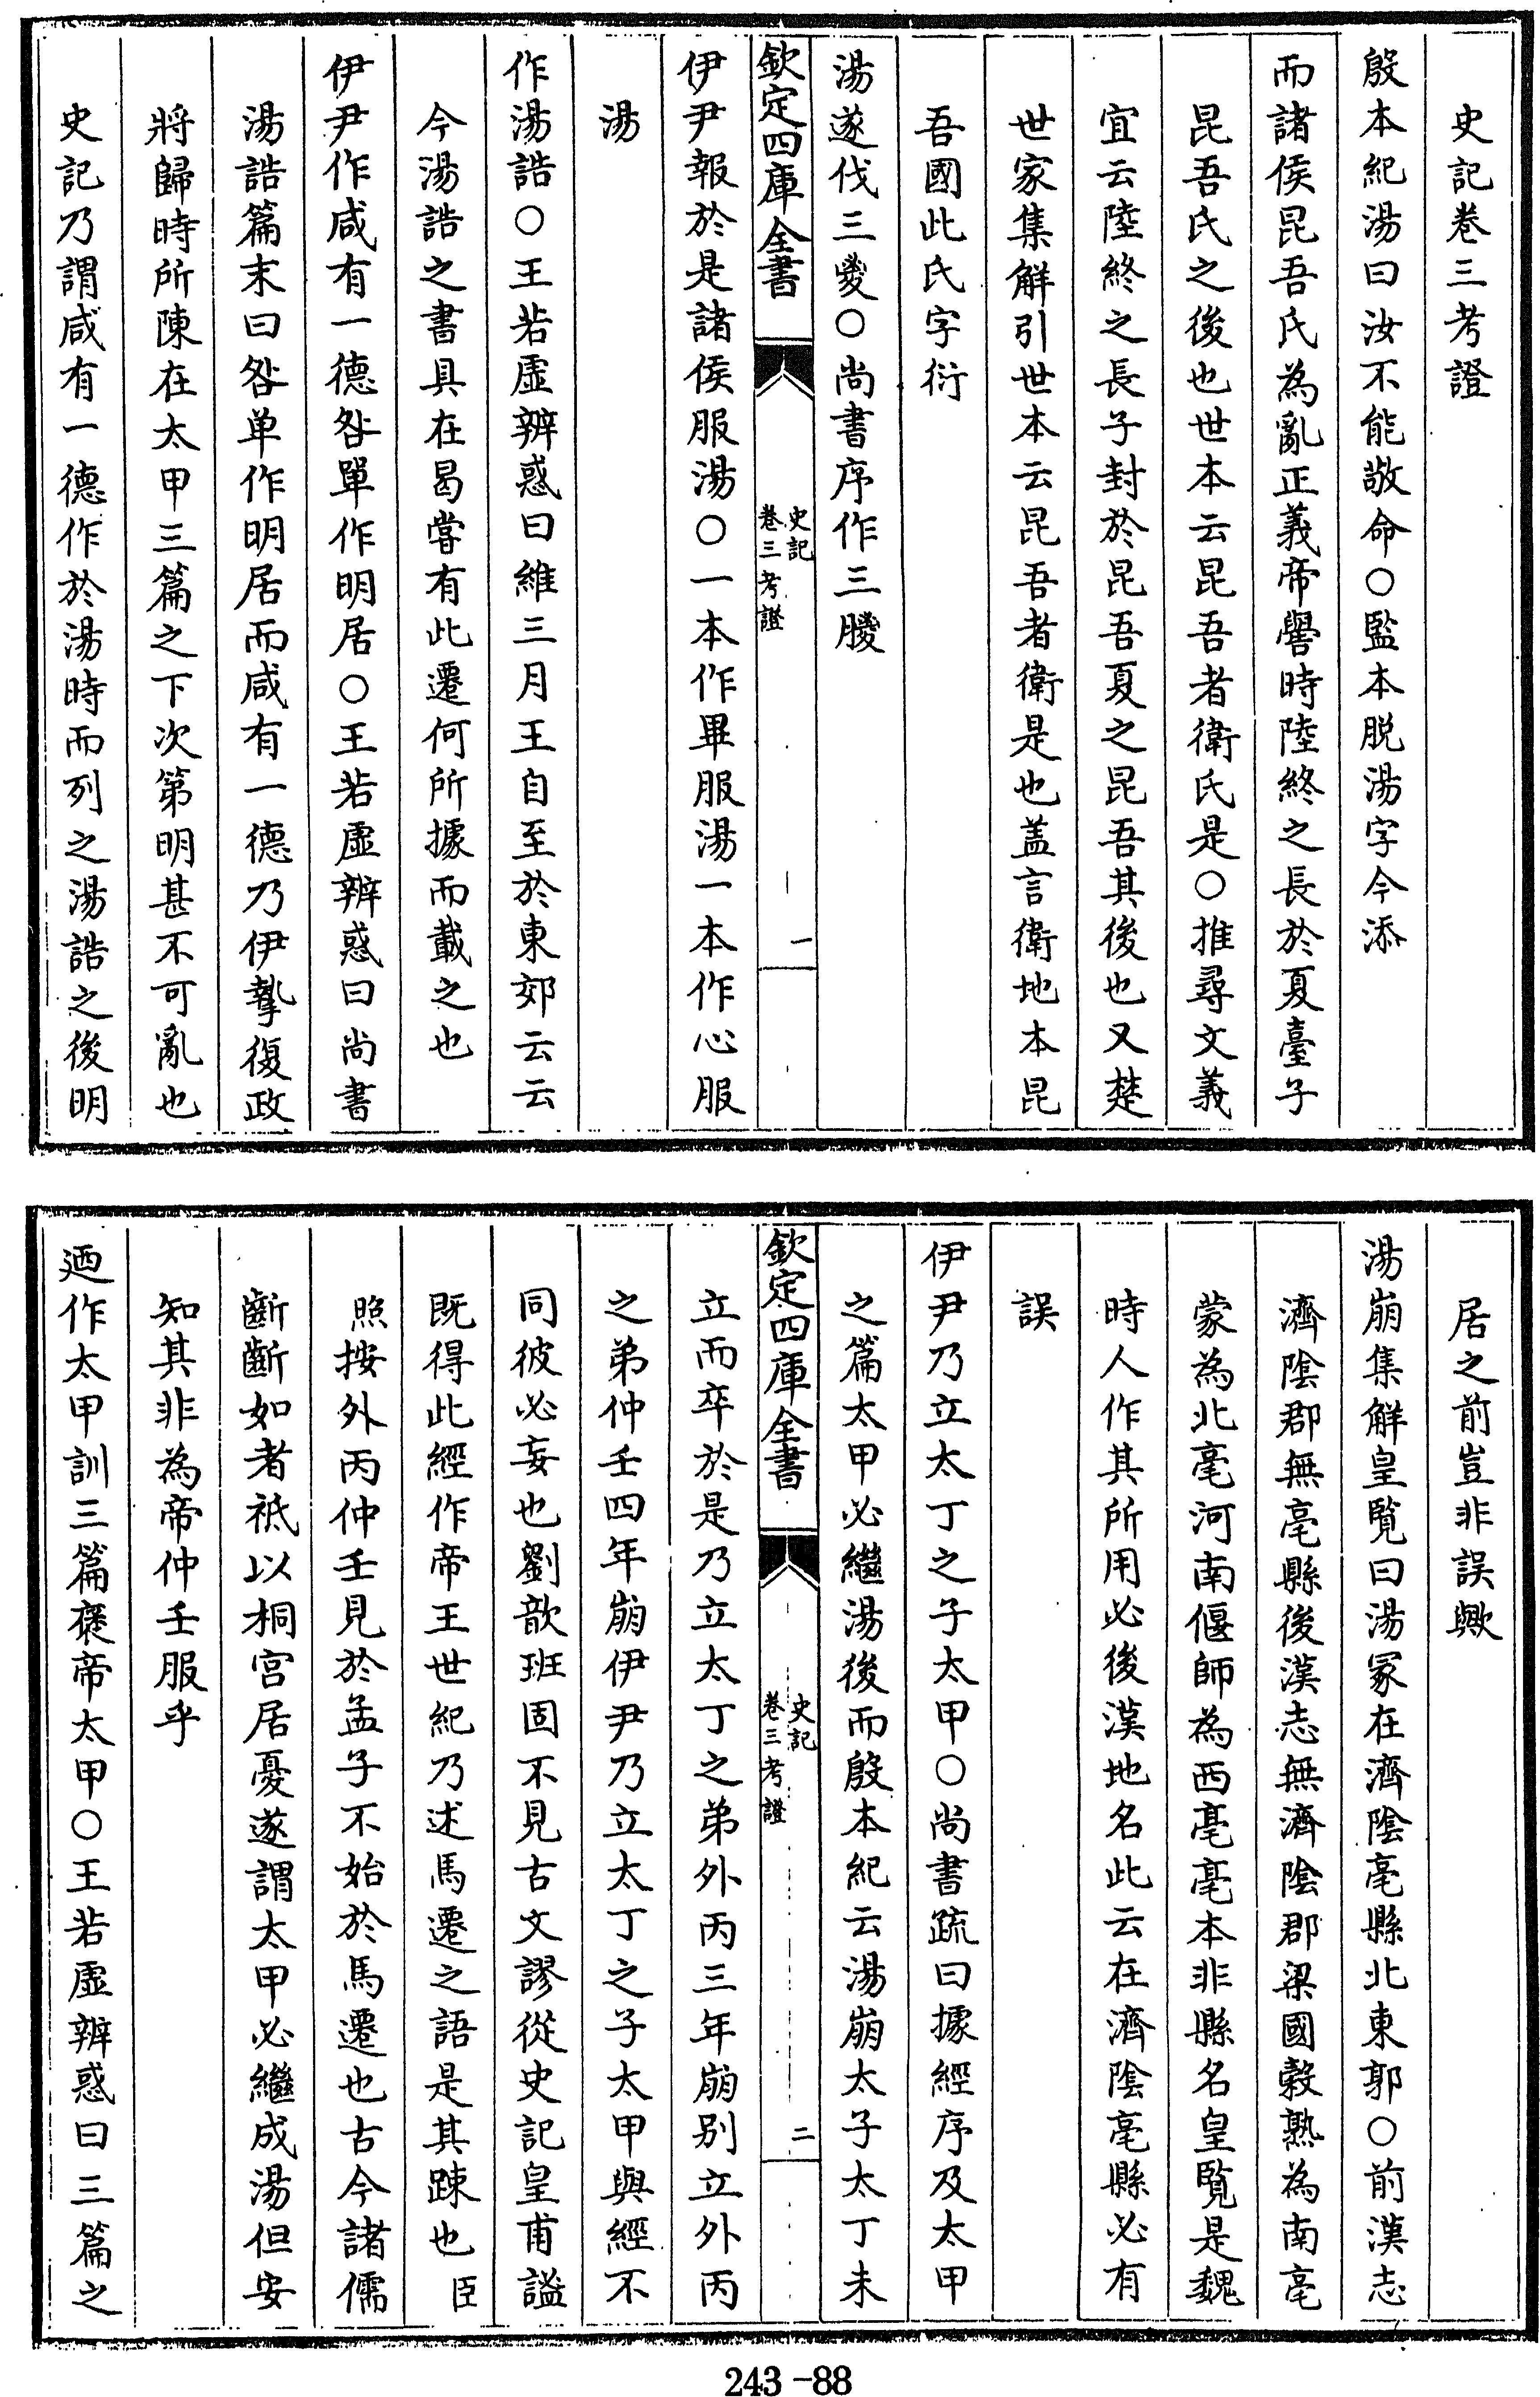 史記卷三考證
殷本紀湯曰汝不能敬命○監本脱湯字今添
而諸侯昆吾氏為亂正義帝嚳時陸終之長於夏臺子
昆吾氏之後也世本云昆吾者衛氏是○推尋文義
宜云陸終之長子封於昆吾夏之昆吾其後也又楚
世家集解引世本云昆吾者衛是也盖言衛地本昆
吾國此氏字衍
湯遂伐三㚇○尚書序作三朡
欽定四庫全書
史記
卷三考證
一
伊尹報於是諸侯服湯○一本作畢服湯一本作心服
湯
作湯誥○王若虛辨惑曰維三月王自至於東郊云云
今湯誥之書具在曷嘗有此遷何所據而載之也
伊尹作咸有一德咎單作明居○王若虛辨惑曰尚書
湯誥篇末曰咎单作明居而咸有一德乃伊摯復政
將歸時所陳在太甲三篇之下次第明甚不可亂也
史記乃謂咸有一德作於湯時而列之湯誥之後明
居之前豈非誤歟
湯崩集解皇覧曰湯冢在濟陰亳縣北東郭○前漢志
濟陰郡無亳縣後漢志無濟陰郡梁國榖熟為南亳
蒙為北亳河南偃師為西亳亳本非縣名皇覧是魏
時人作其所用必後漢地名此云在濟陰亳縣必有
誤
伊尹乃立太丁之子太甲○尚書疏曰據經序及太甲
之篇太甲必繼湯後而殷本紀云湯崩太子太丁未
欽定四庫全書
史記
卷三考證
二
立而卒於是乃立太丁之弟外丙三年崩别立外丙
之弟仲壬四年崩伊尹乃立太丁之子太甲與經不
同彼必妄也劉歆班固不見古文謬從史記皇甫謐
既得此經作帝王世紀乃述馬遷之語是其踈也臣
照按外丙仲壬見於孟子不始於馬遷也古今諸儒
齗齗如者祇以桐宫居憂遂謂太甲必繼成湯但安
知其非為帝仲壬服乎
廼作太甲訓三篇襃帝太甲○王若虛辨惑曰三篇之
243-88